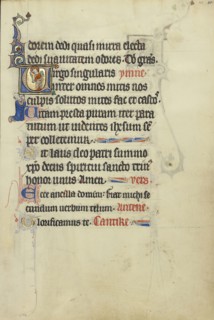 dorem dedi quasi mirra electa
dedi suavitatem odoris. Deo gras.
Virgo singularis ymne
inter omnes mitis nos
culpis solutos mites fac et castos.
Vitam presta puram iter para
tutum ut videntes ihesum sem
per colletemur.
Sit laus deo patri summo
xpo decus spiritui sancto
honor unus. Amen. vers
Ecce ancilla domini fiat michi se
cundum verbum tuum. Antene
Glorificamus te. Cantike